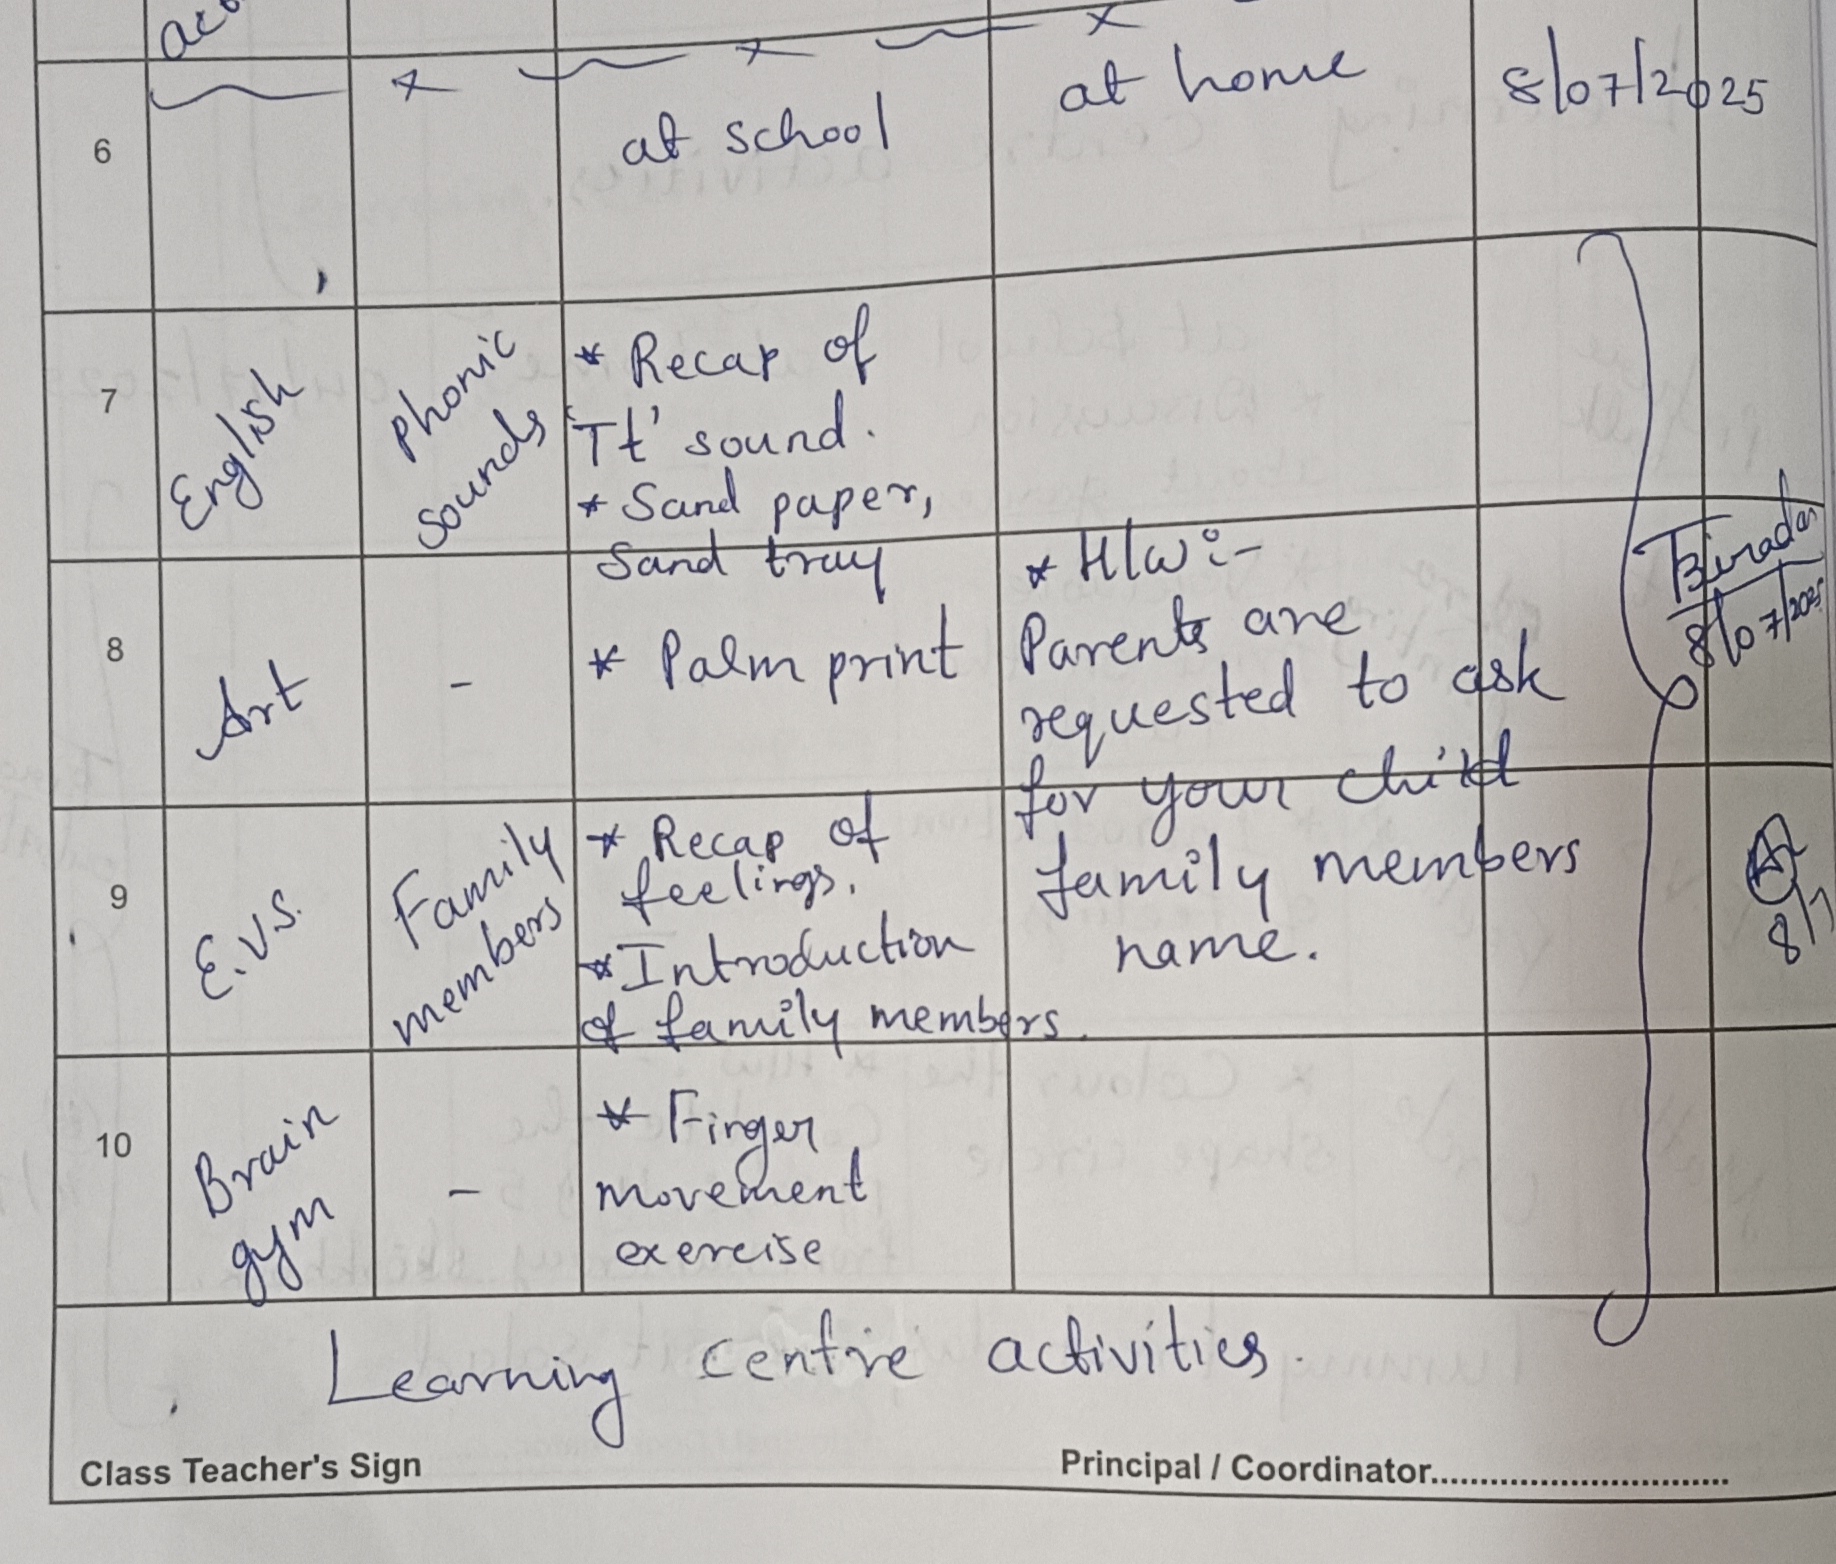 6
at school
at home
8/07/2025
7
English
Phonic
sounds
* Recap of
'Tt' sound.
* Sand paper,
Sand tray
8
Art
-
* Palm print
* H/W:-
Parents are
requested to ask
for your child
family members
name.
Biradar
8/07/2025
9
E.V.S.
Family
members
* Recap of
feelings.
* Introduction
of family members.
8/7
10
Brain
gym
-
* Finger
movement
exercise
Learning centre activities.
Class Teacher's Sign
Principal / Coordinator..............................